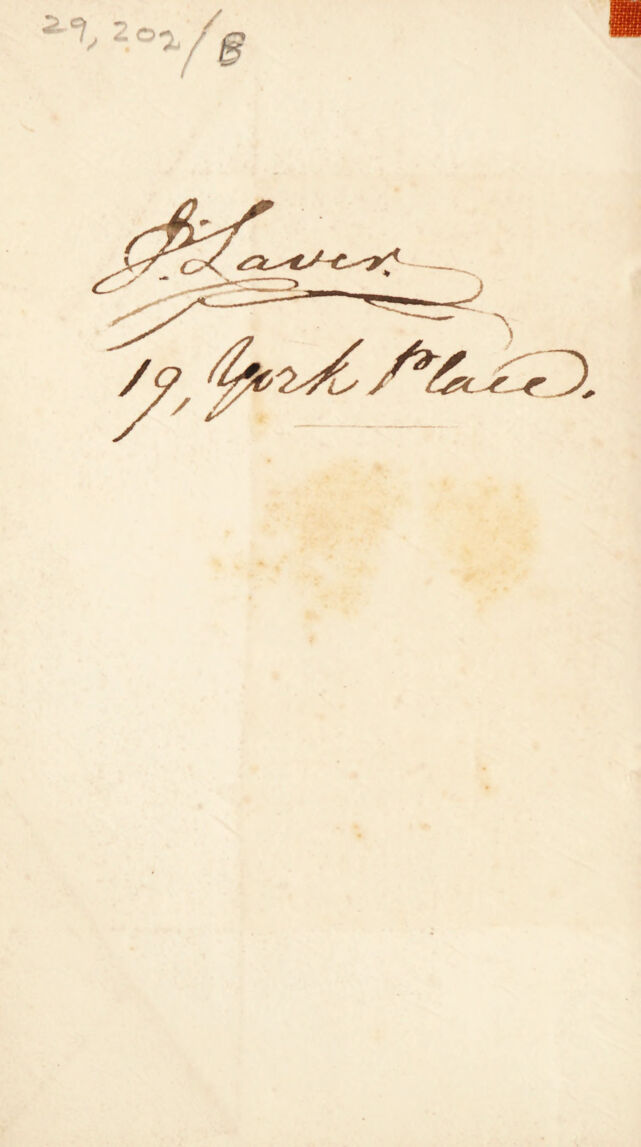 29,202/B
J. Laver.
19, York Place.